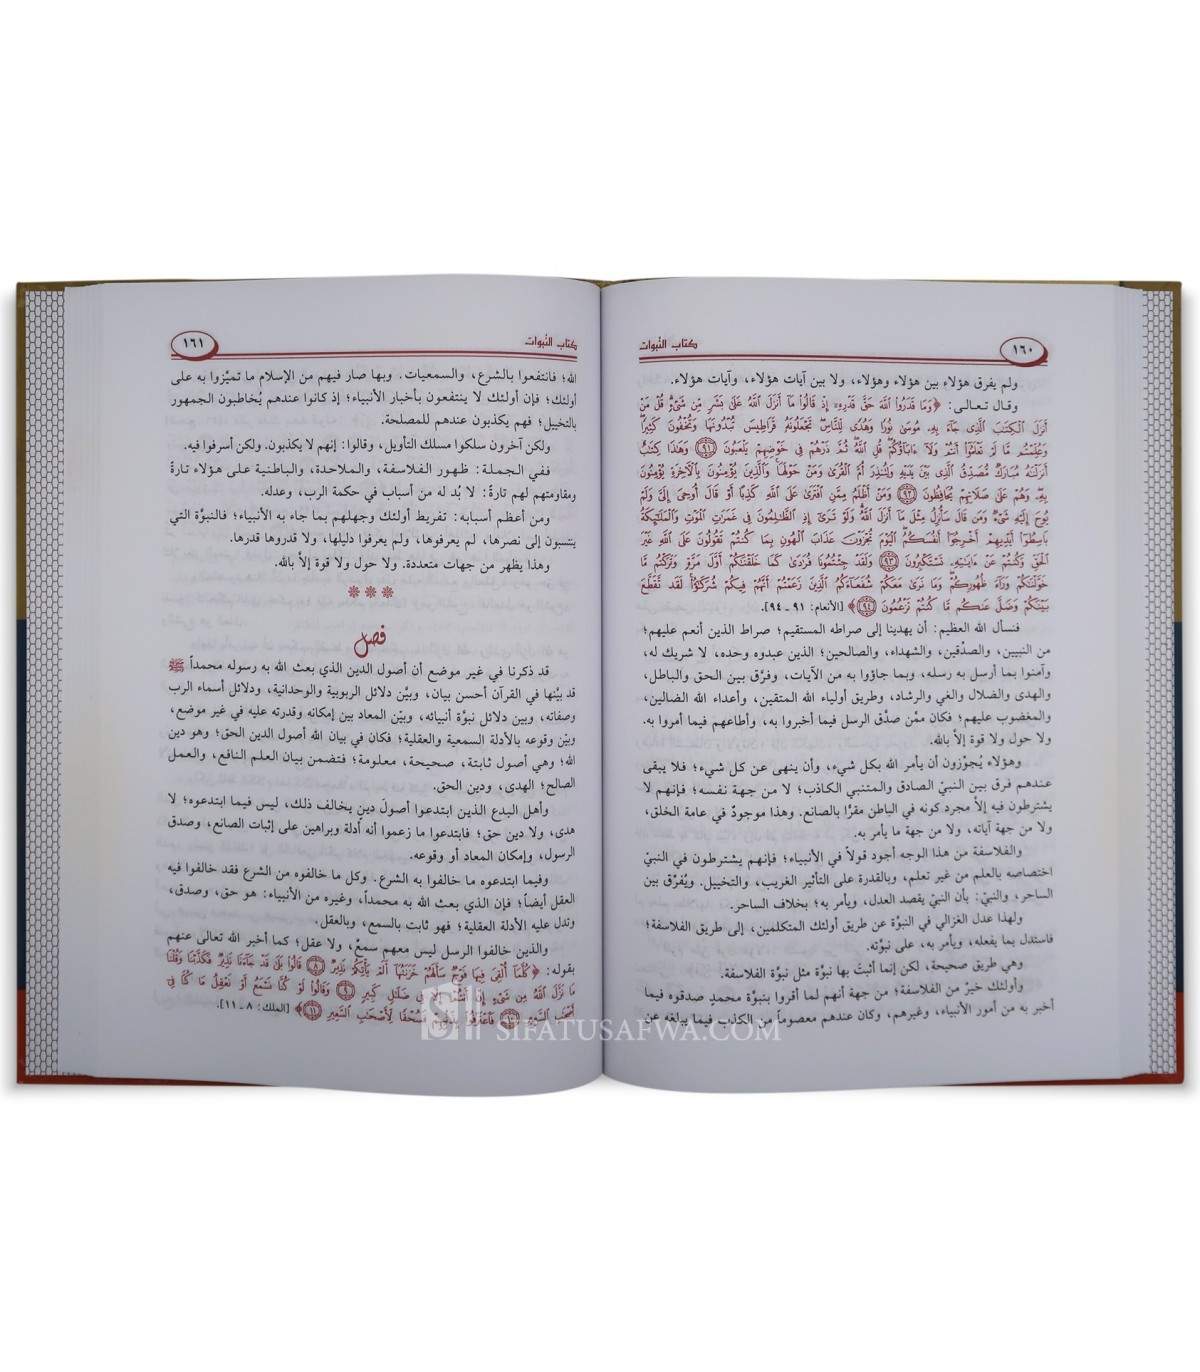 ١٦٠
كتاب النبوات
ولم يفرق هؤلاء بين هؤلاء وهؤلاء، ولا بين آيات هؤلاء، وآيات هؤلاء.
وقال تعالى: ﴿وَمَا قَدَرُوا۟ ٱللَّهَ حَقَّ قَدْرِهِۦٓ إِذْ قَالُوا۟ مَآ أَنزَلَ ٱللَّهُ عَلَىٰ بَشَرٍ مِّن شَىْءٍ قُلْ مَنْ
أَنزَلَ ٱلْكِتَٰبَ ٱلَّذِى جَآءَ بِهِۦ مُوسَىٰ نُورًا وَهُدًى لِّلنَّاسِ تَجْعَلُونَهُۥ قَرَاطِيسَ تُبْدُونَهَا وَتُخْفُونَ كَثِيرًا
وَعُلِّمْتُم مَّا لَمْ تَعْلَمُوٓا۟ أَنتُمْ وَلَآ ءَابَآؤُكُمْ قُلِ ٱللَّهُ ثُمَّ ذَرْهُمْ فِى خَوْضِهِمْ يَلْعَبُونَ ٩١ وَهَٰذَا كِتَٰبٌ
أَنزَلْنَٰهُ مُبَارَكٌ مُّصَدِّقُ ٱلَّذِى بَيْنَ يَدَيْهِ وَلِتُنذِرَ أُمَّ ٱلْقُرَىٰ وَمَنْ حَوْلَهَا وَٱلَّذِينَ يُؤْمِنُونَ بِٱلْءَاخِرَةِ يُؤْمِنُونَ
بِهِۦ وَهُمْ عَلَىٰ صَلَاتِهِمْ يُحَافِظُونَ ٩٢ وَمَنْ أَظْلَمُ مِمَّنِ ٱفْتَرَىٰ عَلَى ٱللَّهِ كَذِبًا أَوْ قَالَ أُوحِىَ إِلَىَّ وَلَمْ
يُوحَ إِلَيْهِ شَىْءٌ وَمَن قَالَ سَأُنزِلُ مِثْلَ مَآ أَنزَلَ ٱللَّهُ وَلَوْ تَرَىٰٓ إِذِ ٱلظَّٰلِمُونَ فِى غَمَرَٰتِ ٱلْمَوْتِ وَٱلْمَلَٰٓئِكَةُ
بَاسِطُوٓا۟ أَيْدِيهِمْ أَخْرِجُوٓا۟ أَنفُسَكُمُ ٱلْيَوْمَ تُجْزَوْنَ عَذَابَ ٱلْهُونِ بِمَا كُنتُمْ تَقُولُونَ عَلَى ٱللَّهِ غَيْرَ
ٱلْحَقِّ وَكُنتُمْ عَنْ ءَايَٰتِهِۦ تَسْتَكْبِرُونَ ٩٣ وَلَقَدْ جِئْتُمُونَا فُرَٰدَىٰ كَمَا خَلَقْنَٰكُمْ أَوَّلَ مَرَّةٍ وَتَرَكْتُم مَّا
خَوَّلْنَٰكُمْ وَرَآءَ ظُهُورِكُمْ وَمَا نَرَىٰ مَعَكُمْ شُفَعَآءَكُمُ ٱلَّذِينَ زَعَمْتُمْ أَنَّهُمْ فِيكُمْ شُرَكَٰٓؤُا۟ لَقَد تَّقَطَّعَ
بَيْنَكُمْ وَضَلَّ عَنكُم مَّا كُنتُمْ تَزْعُمُونَ ٩٤﴾ [الأنعام: ٩١ ـ ٩٤].
فنسأل الله العظيم: أن يهدينا إلى صراطه المستقيم؛ صراط الذين أنعم عليهم؛
من النبيين، والصدّقين، والشهداء، والصالحين؛ الذين عبدوه وحده، لا شريك له،
وآمنوا بما أرسل به رسله، وبما جاؤوا به من الآيات، وفرّق بين الحق والباطل،
والهدى والضلال والغي والرشاد، وطريق أولياء الله المتقين، وأعداء الله الضالين،
والمغضوب عليهم؛ فكان ممّن صدّق الرسل فيما أخبروا به، وأطاعهم فيما أمروا به.
ولا حول ولا قوة إلاّ بالله.
وهؤلاء يُجوّزون أن يأمر الله بكل شيء، وأن ينهى عن كل شيء؛ فلا يبقى
عندهم فرق بين النبيّ الصادق والمتنبي الكاذب؛ لا من جهة نفسه؛ فإنهم لا
يشترطون فيه إلاّ مجرد كونه في الباطن مقرّا بالصانع. وهذا موجودٌ في عامة الخلق،
ولا من جهة آياته، ولا من جهة ما يأمر به.
والفلاسفة من هذا الوجه أجود قولاً في الأنبياء؛ فإنهم يشترطون في النبيّ
اختصاصه بالعلم من غير تعلم، وبالقدرة على التأثير الغريب، والتخييل. ويُفرّق بين
الساحر، والنبيّ: بأن النبيّ يقصد العدل، ويأمر به؛ بخلاف الساحر.
ولهذا عدل الغزالي في النبوّة عن طريق أولئك المتكلمين، إلى طريق الفلاسفة؛
فاستدل بما يفعله، ويأمر به، على نبوّته.
وهي طريق صحيحة، لكن إنما أثبتَ بها نبوّة مثل نبوّة الفلاسفة.
وأولئك خيرٌ من الفلاسفة؛ من جهة أنهم لما أقروا بنبوّة محمدٍ صدقوه فيما
أخبر به من أمور الأنبياء، وغيرهم، وكان عندهم معصوماً من الكذب فيما يبلغه عن
كتاب النبوات
١٦١
الله؛ فانتفعوا بالشرع، والسمعيات. وبها صار فيهم من الإسلام ما تميّزوا به على
أولئك؛ فإن أولئك لا ينتفعون بأخبار الأنبياء؛ إذ كانوا عندهم يُخاطبون الجمهور
بالتخييل؛ فهم يكذبون عندهم للمصلحة.
ولكن آخرون سلكوا مسلك التأويل، وقالوا: إنهم لا يكذبون. ولكن أسرفوا فيه.
ففي الجملة: ظهور الفلاسفة، والملاحدة، والباطنية على هؤلاء تارةً
ومقاومتهم لهم تارةً: لا بُد له من أسباب في حكمة الرب، وعدله.
ومن أعظم أسبابه: تفريط أولئك وجهلهم بما جاء به الأنبياء؛ فالنبوّة التي
ينتسبون إلى نصرها، لم يعرفوها، ولم يعرفوا دليلها، ولا قدروها قدرها.
وهذا يظهر من جهات متعددة. ولا حول ولا قوة إلاّ بالله.
* * *
فصل
قد ذكرنا في غير موضع أن أصول الدين الذي بعث الله به رسوله محمداً ﷺ
قد بيّنها في القرآن أحسن بيان، وبيّن دلائل الربوبية والوحدانية، ودلائل أسماء الرب
وصفاته، وبين دلائل نبوّة أنبيائه، وبيّن المعاد بين إمكانه وقدرته عليه في غير موضع،
وبيّن وقوعه بالأدلة السمعية والعقلية؛ فكان في بيان الله أصول الدين الحق؛ وهو دين
الله؛ وهي أصول ثابتة، صحيحة، معلومة؛ فتضمن بيان العلم النافع، والعمل
الصالح؛ الهدى، ودين الحق.
وأهل البدع الذين ابتدعوا أصولَ دينٍ يخالف ذلك، ليس فيما ابتدعوه؛ لا
هدى، ولا دين حق؛ فابتدعوا ما زعموا أنه أدلة وبراهين على إثبات الصانع، وصدق
الرسول، وإمكان المعاد أو وقوعه.
وفيما ابتدعوه ما خالفوا به الشرع. وكل ما خالفوه من الشرع فقد خالفوا فيه
العقل أيضاً؛ فإن الذي بعث الله به محمداً، وغيره من الأنبياء: هو حق، وصدق،
وتدل عليه الأدلة العقلية؛ فهو ثابت بالسمع، وبالعقل.
والذين خالفوا الرسل ليس معهم سمعٌ، ولا عقل؛ كما أخبر الله تعالى عنهم
بقوله: ﴿كُلَّمَآ أُلْقِىَ فِيهَا فَوْجٌ سَأَلَهُمْ خَزَنَتُهَآ أَلَمْ يَأْتِكُمْ نَذِيرٌ ٨ قَالُوا۟ بَلَىٰ قَدْ جَآءَنَا نَذِيرٌ فَكَذَّبْنَا وَقُلْنَا
مَا نَزَّلَ ٱللَّهُ مِن شَىْءٍ إِنْ أَنتُمْ إِلَّا فِى ضَلَٰلٍ كَبِيرٍ ٩ وَقَالُوا۟ لَوْ كُنَّا نَسْمَعُ أَوْ نَعْقِلُ مَا كُنَّا فِىٓ
أَصْحَٰبِ ٱلسَّعِيرِ ١٠ فَٱعْتَرَفُوا۟ بِذَنۢبِهِمْ فَسُحْقًا لِّأَصْحَٰبِ ٱلسَّعِيرِ ١١﴾ [الملك: ٨ ـ ١١].
SIFATUSAFWA.COM